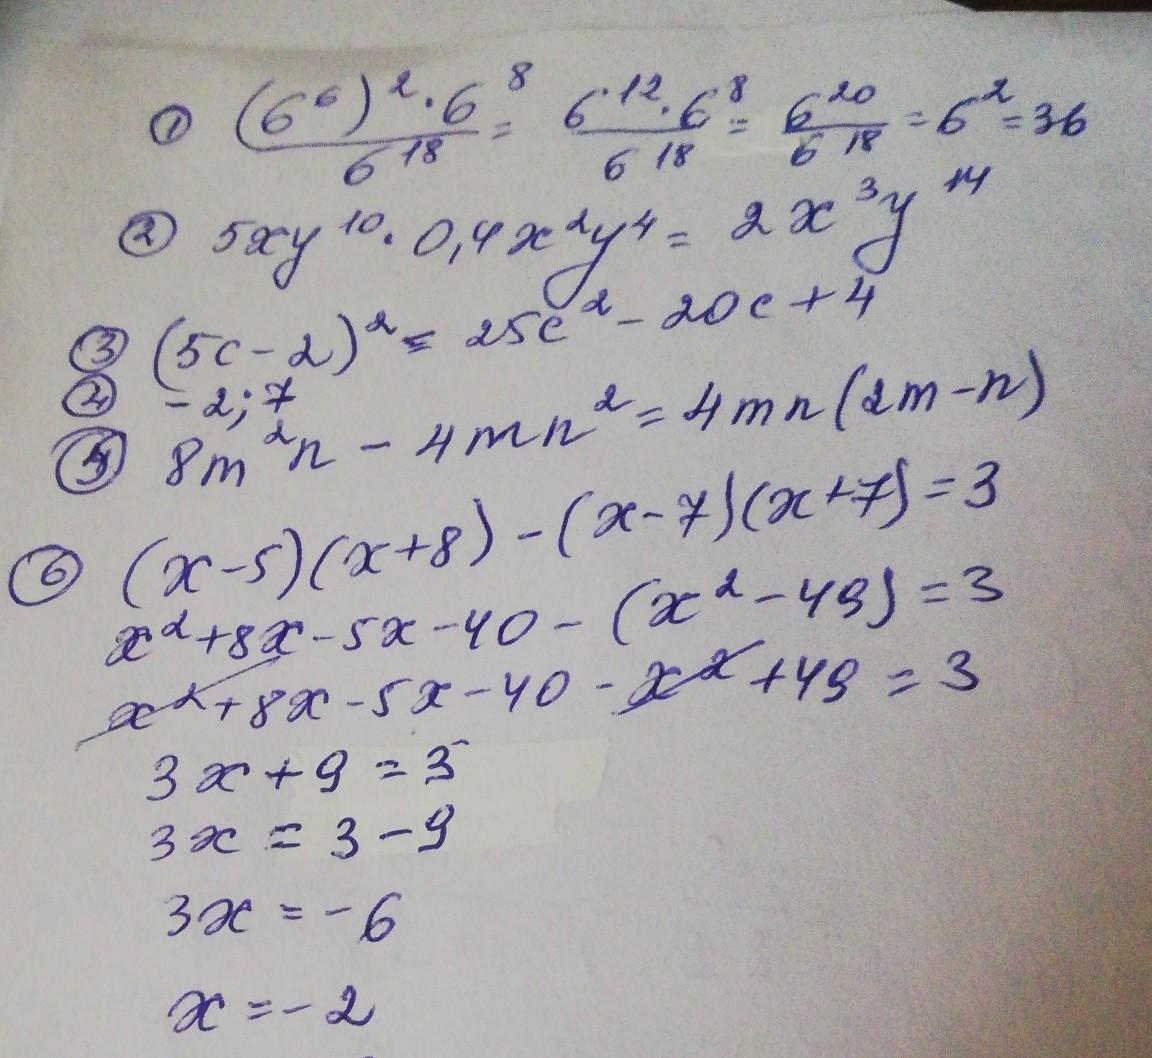 ① (6⁶)²·6⁸/6¹⁸ = 6¹²·6⁸/6¹⁸ = 6²⁰/6¹⁸ = 6² = 36
② 5xy¹⁰·0,4x²y⁴ = 2x³y¹⁴
③ (5c-2)² = 25c² - 20c + 4
④ -2; 7
⑤ 8m²n - 4mn² = 4mn(2m-n)
⑥ (x-5)(x+8) - (x-7)(x+7) = 3
x² + 8x - 5x - 40 - (x² - 49) = 3
x² + 8x - 5x - 40 - x² + 49 = 3
3x + 9 = 3
3x = 3 - 9
3x = -6
x = -2